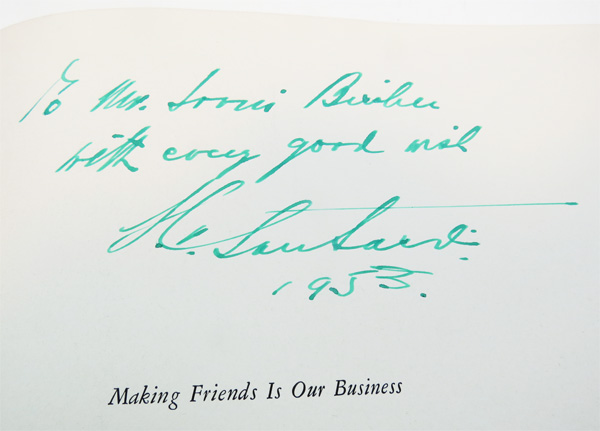 To Mr. Louis Bieber
with every good wish
1953.
Making Friends Is Our Business